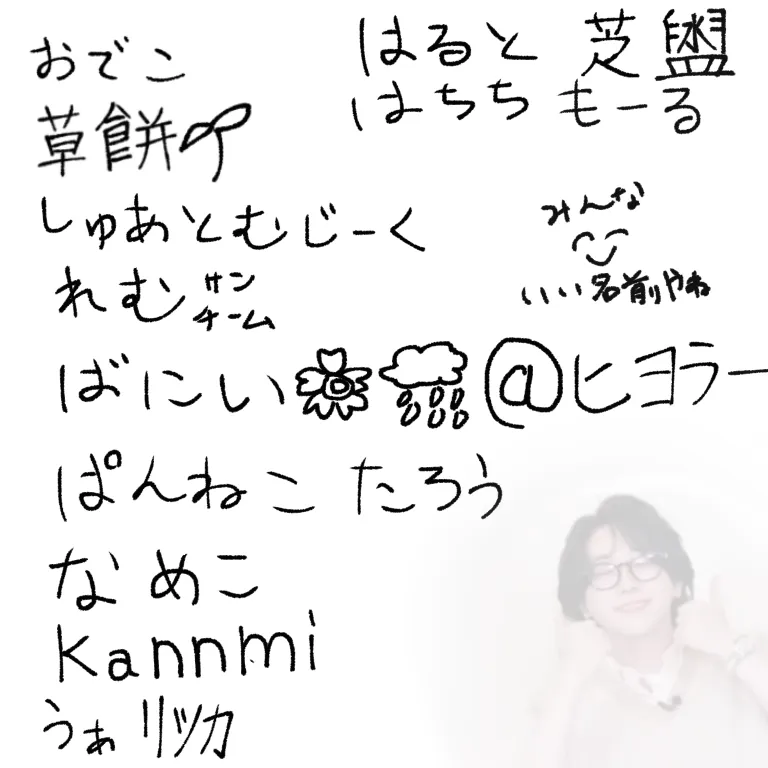 おでこ
はると 芝盥
草餅🌱
はちち もーる
しゅあとむじーく
みんな
いい名前やね
れむサンチーム
ばにぃ🌼🌧@ヒヨラー
ぱんねこ たろう
なめこ
kannmi
うぁ リツカ